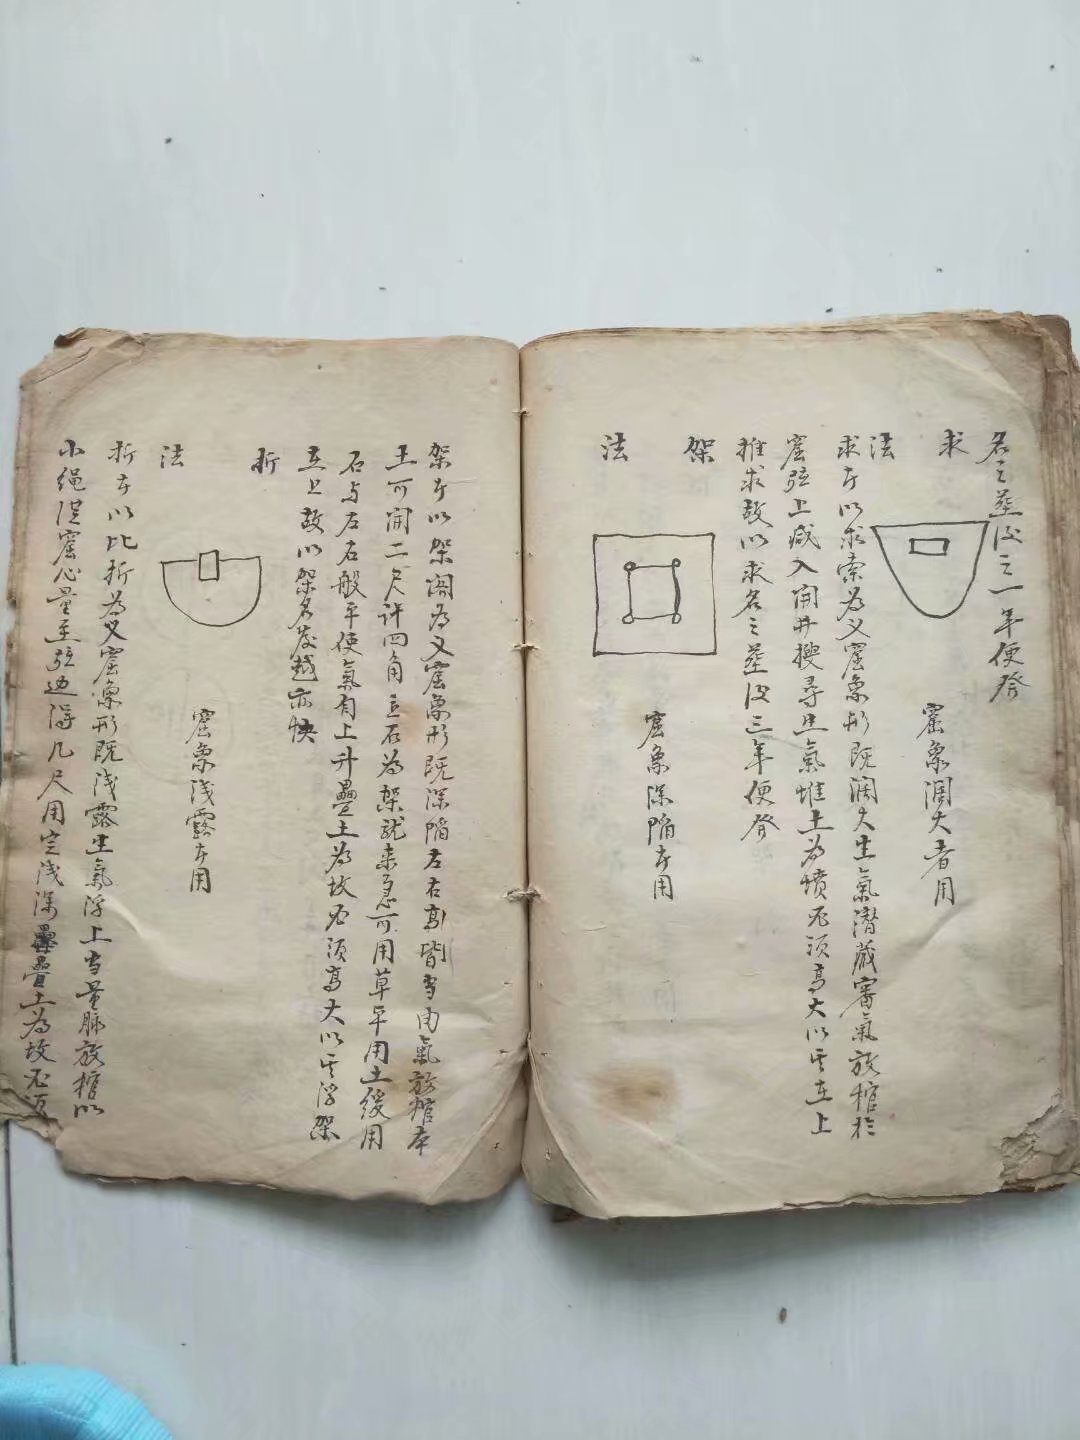 名之葬後之一年便發
求
法
窟象濶大者用
求者以求索為义窟象形既濶大生氣潜蔵審氣放棺於
窟弦上减入開井搜尋生氣堆土為墳不須高大以其在上
推求故以求名之葬後三年便發
架
法
窟象深陷者用
架者以架阁為义窟象形既深陷左右高皆当由氣放棺本
主可開二尺许四角立石為架就来急可用草平用土缓用
石与石石般平使氣自上升疊土為坟不須高大以其浮架
在上故以架名發越亦快
折
法
窟象浅露者用
折者以比折為义窟象形既浅露生氣浮上当量脉放棺以
小绳從窟心量至弦边得几尺用定浅深疊土為坟不須